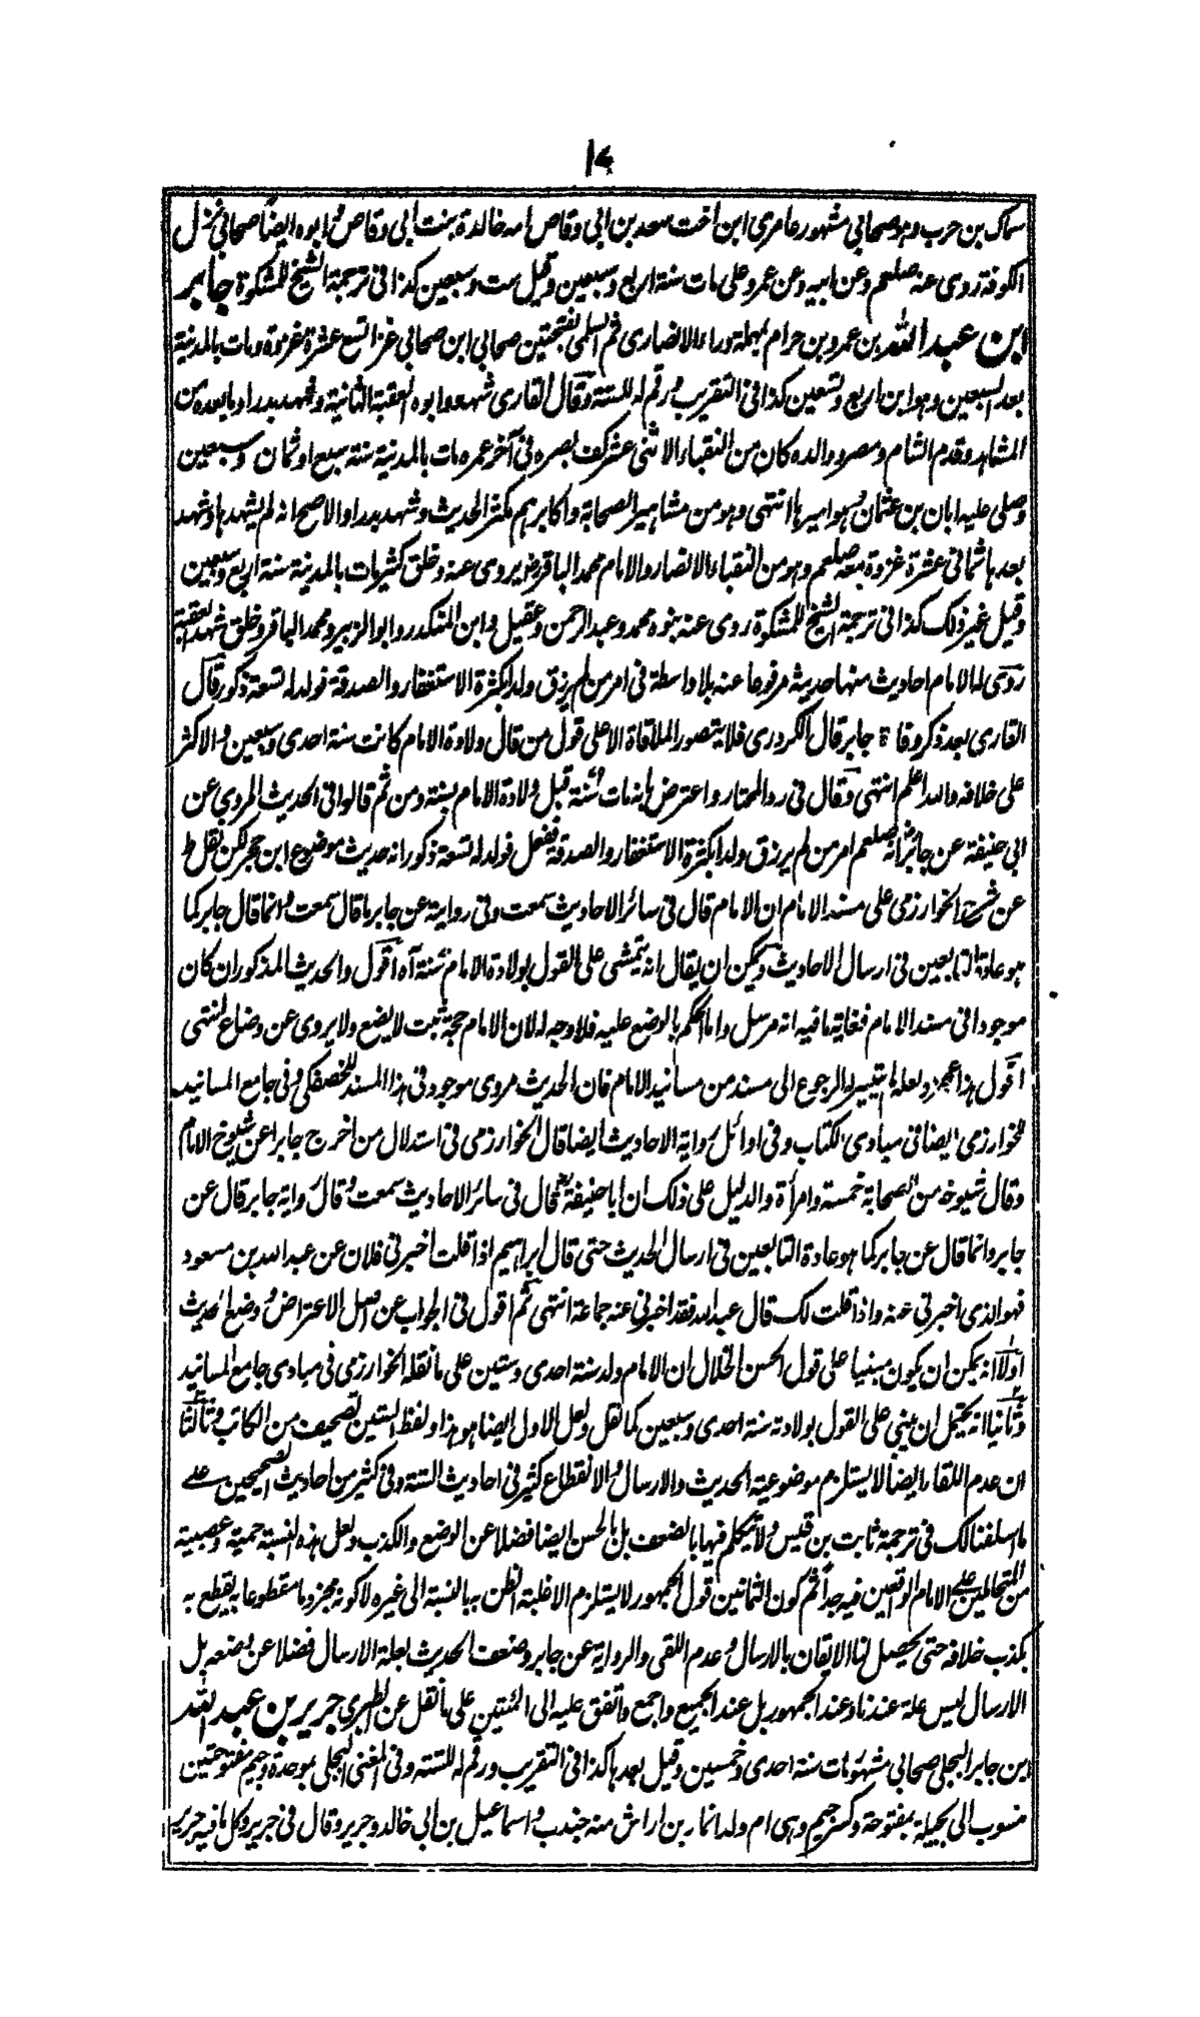 ١٤
سماک بن حرب وہو صحابی مشہور عامری ابن اخت سعد بن ابی وقاص امہ خالدۃ بنت ابی وقاص وابوہ ایضا صحابی نزل
الکوفۃ روی عنہ صلعم وعن ابیہ وعن عمر وعلی مات سنۃ اربع وسبعین وقیل ست وسبعین کذا فی ترجمۃ الشیخ للمشکوۃ جابر
ابن عبد اللہ بن عمرو بن حرام بمہملۃ وراء الانصاری ثم السلمی بفتحتین صحابی ابن صحابی غزا تسع عشرۃ غزوۃ ومات بالمدینۃ
بعد السبعین وہو ابن اربع وتسعین کذا فی التقریب ورقم لہ للستۃ وقال القاری شہد وابوہ العقبۃ الثانیۃ وشہد بدرا وما بعدہ من
المشاہد وقدم الشام ومصر ووالدہ کان من النقباء الاثنی عشر کف بصرہ فی آخر عمرہ مات بالمدینۃ سنۃ سبع او ثمان وسبعین
وصلی علیہ ابان بن عثمان وہو امیرہا انتہی وہو من مشاہیر الصحابۃ واکابرہم مکثر الحدیث وشہد بدرا والاصح انہ لم یشہدہا وشہد
بعدہا ثمانی عشرۃ غزوۃ معہ صلعم وہو من النقباء الانصار والامام محمد الباقر رض یروی عنہ وخلق کثیر مات بالمدینۃ سنۃ اربع وسبعین
وقیل غیر ذلک کذا فی ترجمۃ الشیخ للمشکوۃ روی عنہ بنوہ محمد وعبد الرحمن وعقیل وابن المنکدر وابو الزبیر ومحمد الباقر وخلق شہد العقبۃ
روی لہ الامام احادیث منہا حدیث مرفوعا عنہ بلا واسطۃ فی امر من لم یرزق ولد ا بکثرۃ الاستغفار والصدقۃ فولد لہ تسعۃ ذکور قال
القاری بعد ذکر وفاۃ جابر قال الکردری فلا یتصور الملاقاۃ الا علی قول من قال ولادۃ الامام کانت سنۃ احدی وسبعین والاکثر
علی خلافہ واللہ اعلم انتہی وقال فی رد المحتار واعترض بانہ مات سنۃ قبل ولادۃ الامام بسنۃ ومن ثم قالوا فی الحدیث المروی عن
ابی حنیفۃ عن جابر انہ صلعم امر من لم یرزق ولدا بکثرۃ الاستغفار والصدقۃ ففعل فولد لہ تسعۃ ذکور انہ حدیث موضوع ابن حجر لکن نقل ط
عن شرح الخوارزمی علی مسند الامام ان الامام قال فی سائر الاحادیث سمعت وفی روایتہ عن جابر ما قال سمعت وانما قال جابر کما
ہو عادۃ التابعین فی ارسال الاحادیث ویمکن ان یقال انہ یتمشی علی القول بولادۃ الامام سنۃ آہ اقول والحدیث المذکور ان کان
موجودا فی مسند الامام فغایۃ ما فیہ انہ مرسل واما الحکم بالوضع علیہ فلا وجہ لہ لان الامام حجۃ ثبت لا یضع ولا یروی عن وضاع انتہی
اقول ہذا عجز ولعلہ لم یتیسر لہ الرجوع الی مسند من مسانید الامام فان الحدیث مروی موجود فی ہذا المسند للحصفکی وفی جامع المسانید
للخوارزمی ایضا فی مبادی الکتاب وفی اوائل روایۃ الاحادیث ایضا قال الخوارزمی فی استدلال من اخرج جابرا عن شیوخ الامام
وقال شیوخہ من الصحابۃ خمسۃ وامرأۃ والدلیل علی ذلک ان ابا حنیفۃ رح قال فی سائر الاحادیث سمعت وقال روایۃ جابر قال عن
جابر وانما قال عن جابر کما ہو عادۃ التابعین فی ارسال الحدیث حتی قال ابراہیم اذا قلت اخبرنی فلان عن عبد اللہ بن مسعود
فہو الذی اخبرنی عنہ واذا قلت لک قال عبد اللہ فقد اخبرنی عنہ جماعۃ انتہی ثم اقول فی الجواب عن اصل الاعتراض وضع الحدیث
اولا انہ یمکن ان یکون مبنیا علی قول الحسن الخلال ان الامام ولد سنۃ احدی وستین علی ما نقلہ الخوارزمی فی مبادی جامع المسانید
وثانیا انہ یحتمل ان یبنی علی القول بولادتہ سنۃ احدی وسبعین کما نقل ولعل الاول ایضا ہو ہذا ولفظ الستین تصحیف من الکاتب وثالثا
ان عدم اللقاء ایضا لا یستلزم موضوعیۃ الحدیث والارسال والانقطاع کثیر فی احادیث الستۃ وفی کثیر من احادیث الصحیحین علی
ما اسلفنا لک فی ترجمۃ ثابت بن قیس ولا یحکم فیہا بالضعف بل بالحسن ایضا فضلا عن الوضع والکذب ولعل ہذہ النسبۃ حمیۃ وعصبیۃ
من المتحاملین علی الامام الواقعین فیہ جدا ثم کون الثمانین قول الجمہور لا یستلزم الا غلبۃ الظن بہ بالنسبۃ الی غیرہ لا کونہ مجزوما مقطوعا بہ یقطع بہ
بکذب خلافہ حتی یحصل لنا الایقان بالارسال وعدم اللقی والروایۃ عن جابر وضعف الحدیث بعلۃ الارسال فضلا عن وضعہ بل
الارسال لیس علۃ عندنا وعند الجمہور بل عند الجمیع واجمع واتفق علیہ الی المئتین علی ما نقل عن الطبری جریر بن عبد اللہ
ابن جابر البجلی صحابی مشہور مات سنۃ احدی وخمسین وقیل بعدہا کذا فی التقریب ورقم لہ للستۃ وفی المغنی البجلی بموحدۃ وجیم مفتوحتین
منسوب الی بجیلۃ بمفتوحۃ وکسر جیم وہی ام ولد انمار بن اراش منہ جندب واسماعیل بن ابی خالد وجریر وقال فی جریر وکل ما فیہ جریر